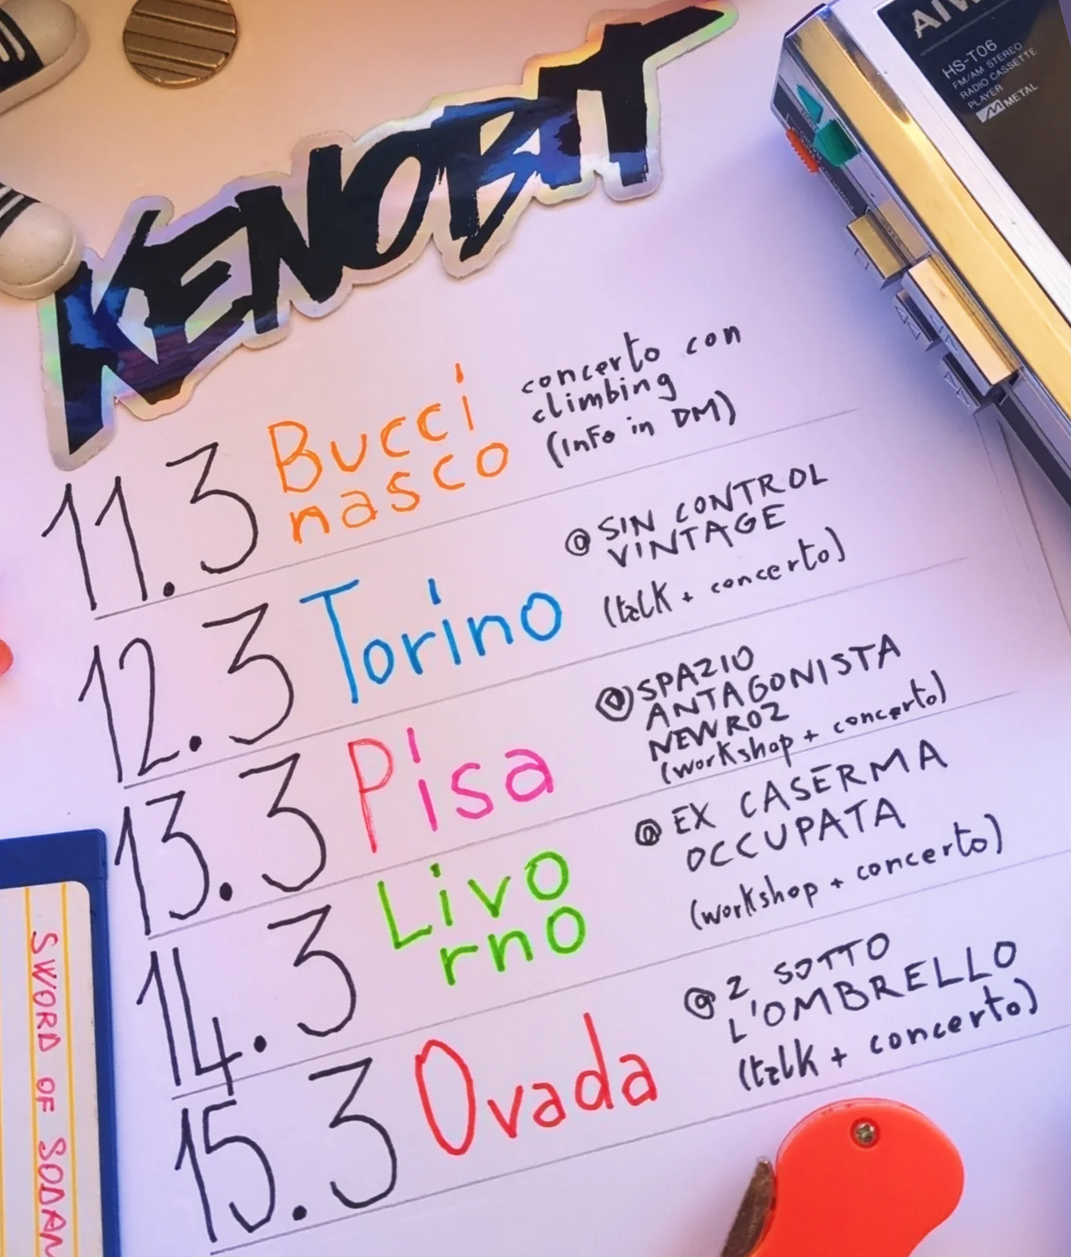 KENOBIT
AIW
HS-T06
FM/AM STEREO
RADIO CASSETTE
PLAYER
METAL
11.3
Bucci
nasco
concerto con
climbing
(info in DM)
12.3
Torino
@ SIN CONTROL
VINTAGE
(talk + concerto)
13.3
Pisa
@ SPAZIO
ANTAGONISTA
NEWROZ
(workshop + concerto)
14.3
Livo
rno
@ EX CASERMA
OCCUPATA
(workshop + concerto)
15.3
Ovada
@ 2 SOTTO
L'OMBRELLO
(talk + concerto)
SWORD OF SODAN